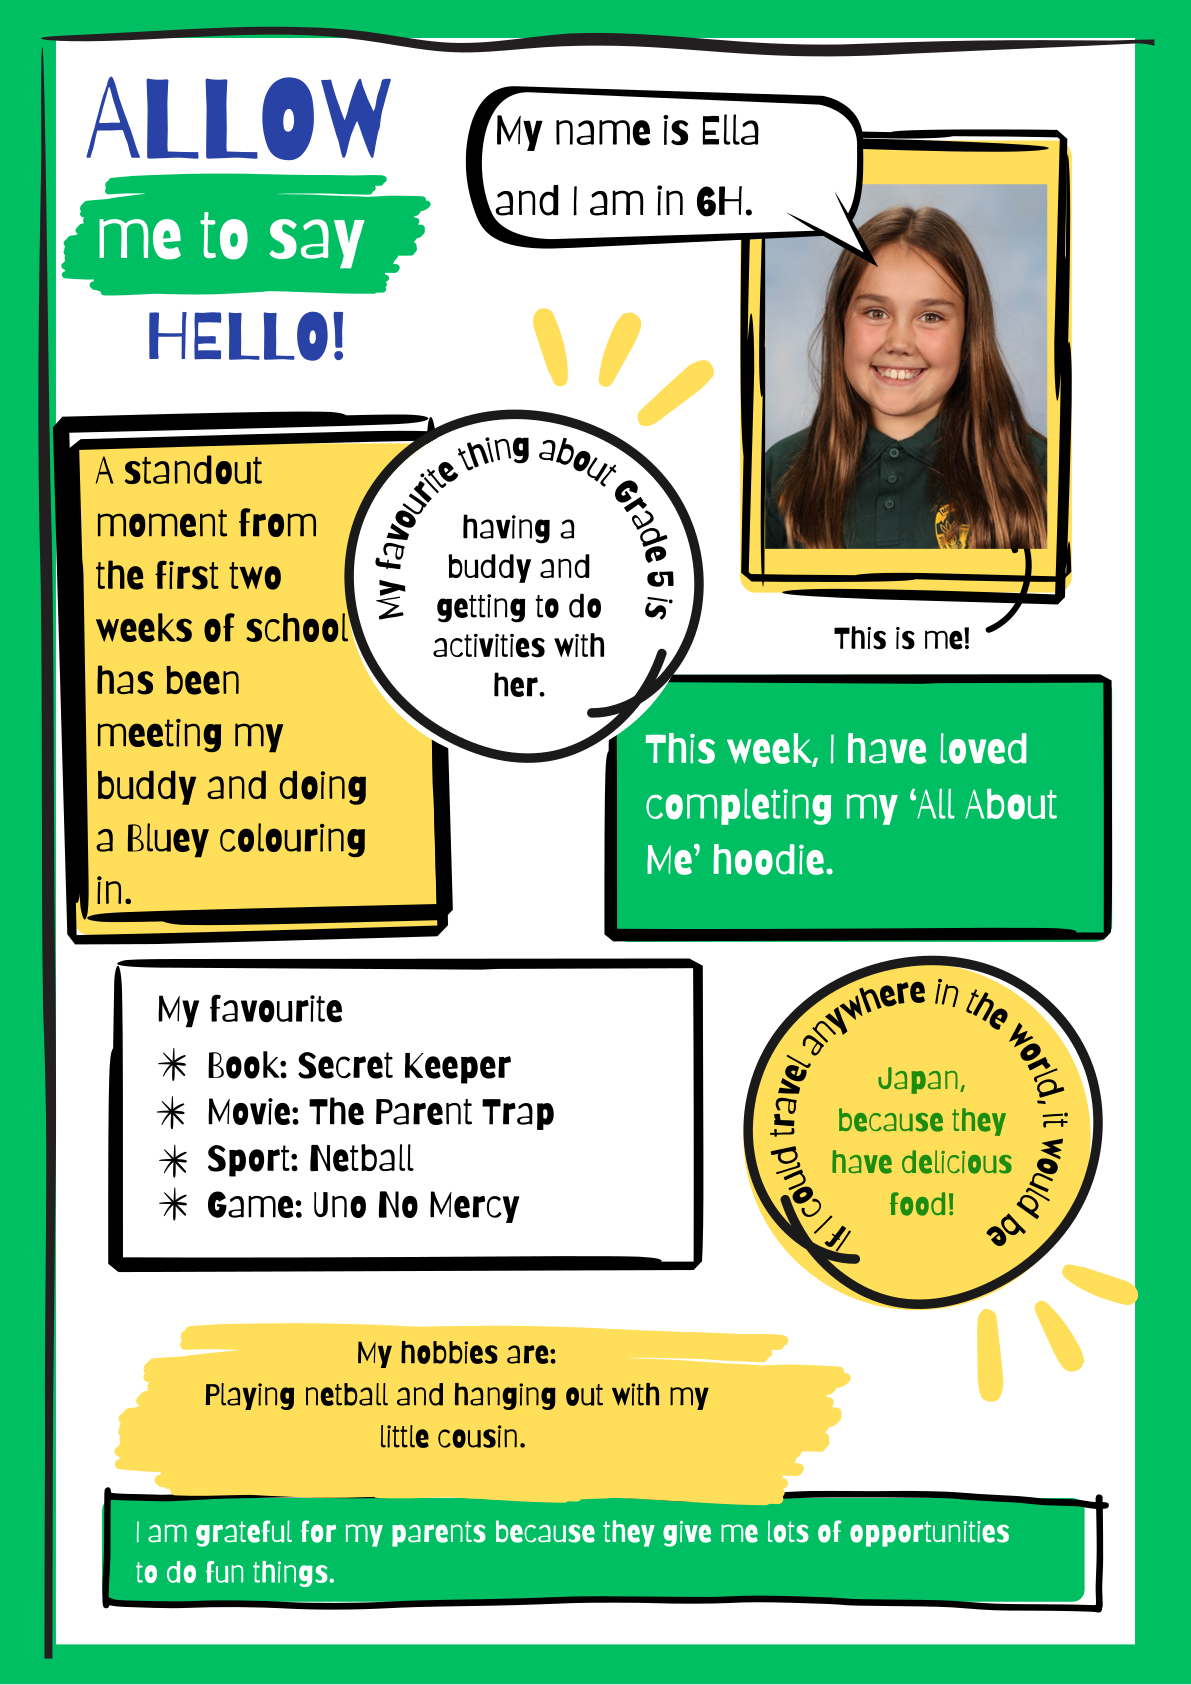 ALLOW
me to say
HELLO!
My name is Ella
and I am in 6H.
This is me!
A standout
moment from
the first two
weeks of school
has been
meeting my
buddy and doing
a Bluey colouring
in.
My favourite thing about Grade 5 is
having a
buddy and
getting to do
activities with
her.
This week, I have loved
completing my ‘All About
Me’ hoodie.
My favourite
Book: Secret Keeper
Movie: The Parent Trap
Sport: Netball
Game: Uno No Mercy
If I could travel anywhere in the world, it would be
Japan,
because they
have delicious
food!
My hobbies are:
Playing netball and hanging out with my
little cousin.
I am grateful for my parents because they give me lots of opportunities
to do fun things.